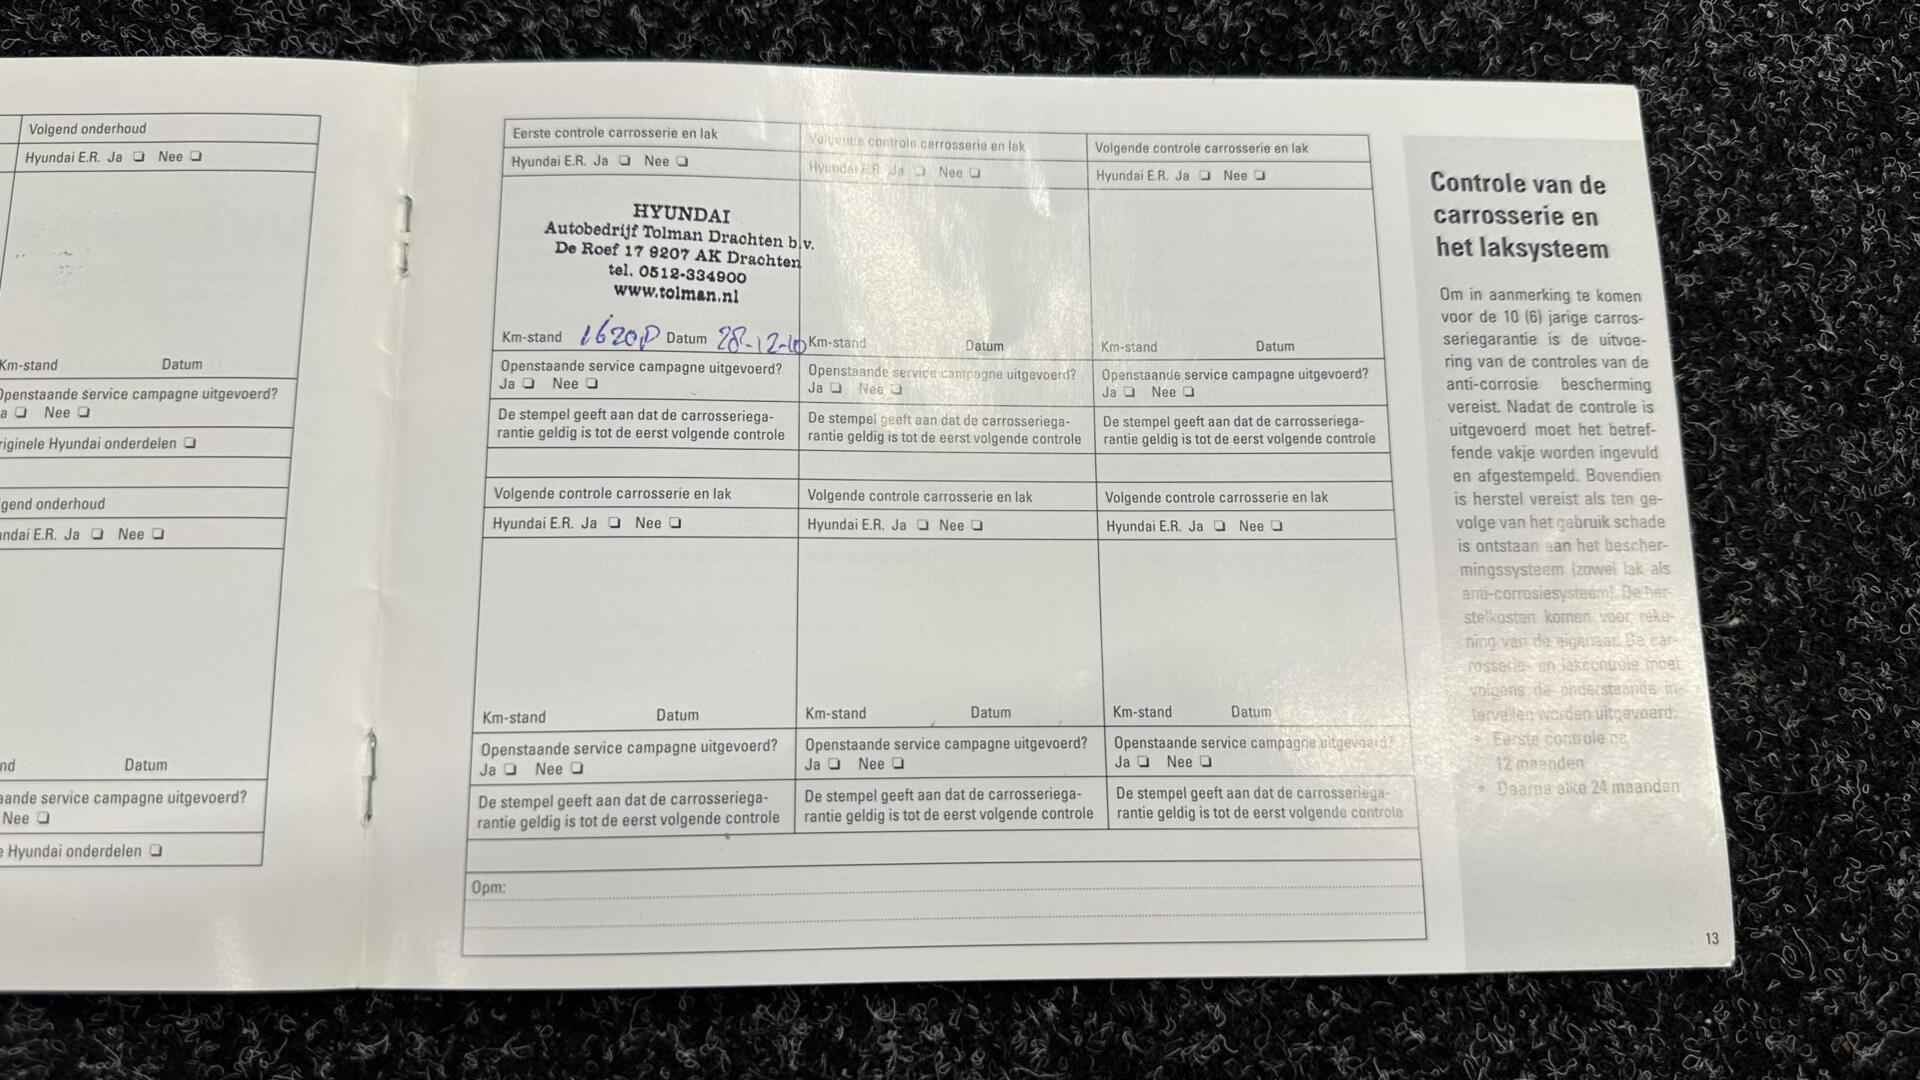 Volgend onderhoud
Hyundai E.R. Ja ❏ Nee ❏
Km-stand Datum
Openstaande service campagne uitgevoerd?
Ja ❏ Nee ❏
riginele Hyundai onderdelen ❏
gend onderhoud
ndai E.R. Ja ❏ Nee ❏
nd Datum
aande service campagne uitgevoerd?
Nee ❏
e Hyundai onderdelen ❏
Eerste controle carrosserie en lak
Hyundai E.R. Ja ❏ Nee ❏
HYUNDAI
Autobedrijf Tolman Drachten b.v.
De Roef 17 9207 AK Drachten
tel. 0512-334900
www.tolman.nl
Km-stand Datum 28-12-10
Openstaande service campagne uitgevoerd?
Ja ❏ Nee ❏
De stempel geeft aan dat de carrosseriega-
rantie geldig is tot de eerst volgende controle
Volgende controle carrosserie en lak
Hyundai E.R. Ja ❏ Nee ❏
Km-stand Datum
Openstaande service campagne uitgevoerd?
Ja ❏ Nee ❏
De stempel geeft aan dat de carrosseriega-
rantie geldig is tot de eerst volgende controle
Volgende controle carrosserie en lak
Hyundai E.R. Ja ❏ Nee ❏
Km-stand Datum
Openstaande service campagne uitgevoerd?
Ja ❏ Nee ❏
De stempel geeft aan dat de carrosseriega-
rantie geldig is tot de eerst volgende controle
Volgende controle carrosserie en lak
Hyundai E.R. Ja ❏ Nee ❏
Km-stand Datum
Openstaande service campagne uitgevoerd?
Ja ❏ Nee ❏
De stempel geeft aan dat de carrosseriega-
rantie geldig is tot de eerst volgende controle
Volgende controle carrosserie en lak
Hyundai E.R. Ja ❏ Nee ❏
Km-stand Datum
Openstaande service campagne uitgevoerd?
Ja ❏ Nee ❏
De stempel geeft aan dat de carrosseriega-
rantie geldig is tot de eerst volgende controle
Volgende controle carrosserie en lak
Hyundai E.R. Ja ❏ Nee ❏
Km-stand Datum
Openstaande service campagne uitgevoerd?
Ja ❏ Nee ❏
De stempel geeft aan dat de carrosseriega-
rantie geldig is tot de eerst volgende controle
Opm:
Controle van de
carrosserie en
het laksysteem
Om in aanmerking te komen
voor de 10 (6) jarige carros-
seriegarantie is de uitvoe-
ring van de controles van de
anti-corrosie bescherming
vereist. Nadat de controle is
uitgevoerd moet het betref-
fende vakje worden ingevuld
en afgestempeld. Bovendien
is herstel vereist als ten ge-
volge van het gebruik schade
is ontstaan aan het bescher-
mingssysteem (zowel lak als
anti-corrosiesysteem). De her-
stelkosten komen voor reke-
ning van de eigenaar. De car-
rosserie- en lakcontrole moet
volgens de onderstaande in-
tervallen worden uitgevoerd:
• Eerste controle na
12 maanden
• Daarna elke 24 maanden
13